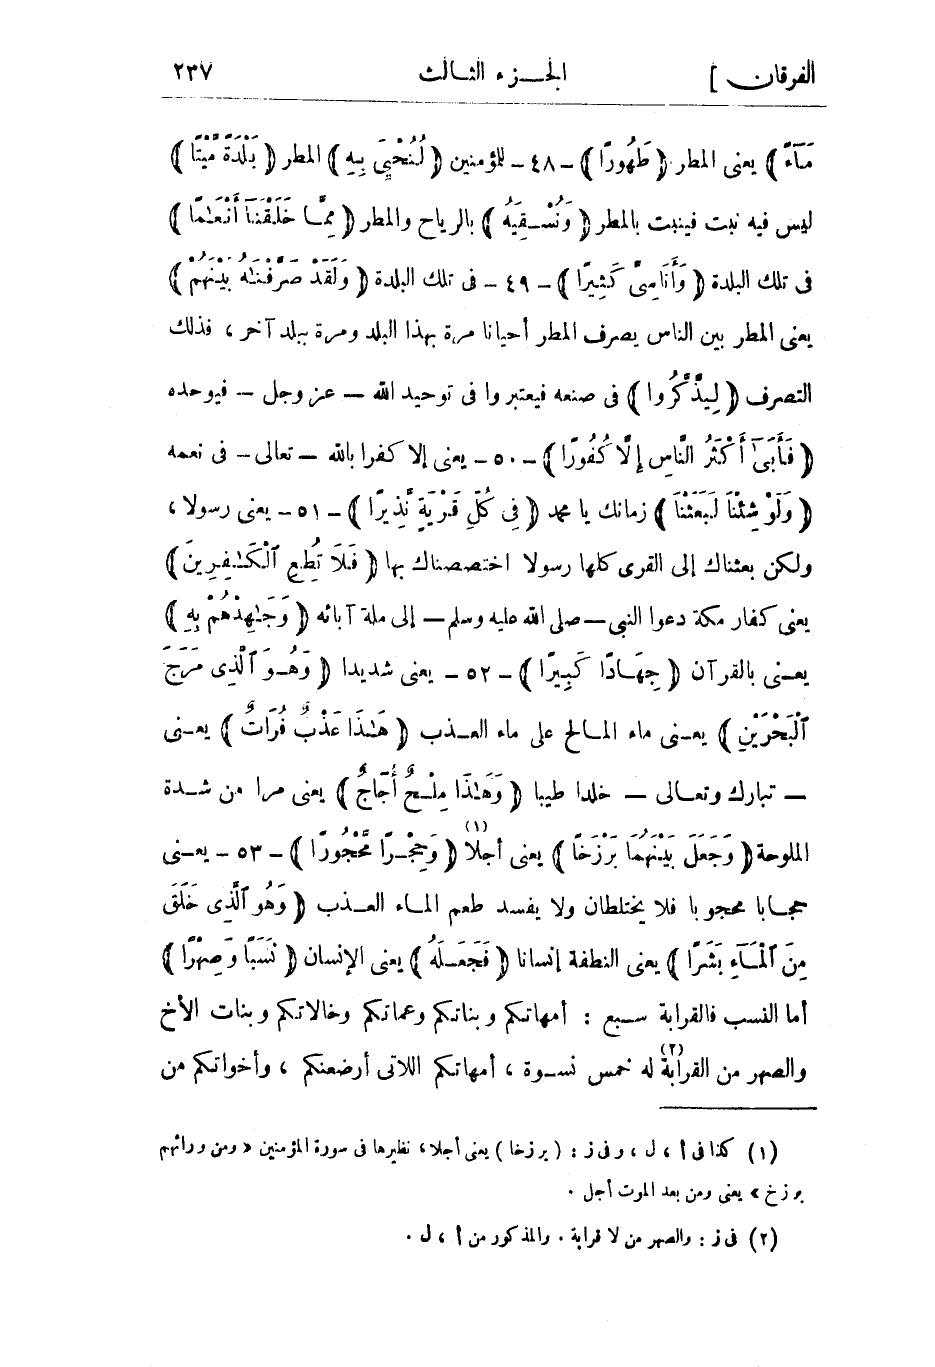 الفرقان ] الجزء الثالث ٢٣٧
مَآءً ﴾ يعنى المطر ﴿ طَهُورًا ﴾ - ٤٨ - للمؤمنين ﴿ لِّنُحْۦِىَ بِهِ ﴾ المطر ﴿ بَلْدَةً مَّيْتًا ﴾
ليس فيه نبت فينبت بالمطر ﴿ وَنُسْقِيَهُ ﴾ بالرياح والمطر ﴿ مِمَّا خَلَقْنَآ أَنْعَٰمًا ﴾
فى تلك البلدة ﴿ وَأَنَاسِىَّ كَثِيرًا ﴾ - ٤٩ - فى تلك البلدة ﴿ وَلَقَدْ صَرَّفْنَٰهُ بَيْنَهُمْ ﴾
يعنى المطر بين الناس يصرف المطر أحيانا مرة بهذا البلد ومرة ببلد آخر ، فذلك
التصرف ﴿ لِيَذَّكَّرُوا ﴾ فى صنعه فيعتبروا فى توحيد الله - عز وجل - فيوحده
﴿ فَأَبَىٰٓ أَكْثَرُ النَّاسِ إِلَّا كُفُورًا ﴾ - ٥٠ - يعنى إلا كفرا بالله - تعالى - فى نعمه
﴿ وَلَوْ شِئْنَا لَبَعَثْنَا ﴾ زمانك يا محمد ﴿ فِى كُلِّ قَرْيَةٍ نَّذِيرًا ﴾ - ٥١ - يعنى رسولا ،
ولكن بعثناك إلى القرى كلها رسولا اختصصناك بها ﴿ فَلَا تُطِعِ ٱلْكَٰفِرِينَ ﴾
يعنى كفار مكة دعوا النبى - صلى الله عليه وسلم - إلى ملة آبائه ﴿ وَجَٰهِدْهُمْ بِهِ ﴾
يعنى بالقرآن ﴿ جِهَادًا كَبِيرًا ﴾ - ٥٢ - يعنى شديدا ﴿ وَهُوَ ٱلَّذِى مَرَجَ
ٱلْبَحْرَيْنِ ﴾ يعنى ماء المالح على ماء العذب ﴿ هَٰذَا عَذْبٌ فُرَاتٌ ﴾ يعنى
- تبارك وتعالى - خلدا طيبا ﴿ وَهَٰذَا مِلْحٌ أُجَاجٌ ﴾ يعنى مرا من شدة
الملوحة ﴿ وَجَعَلَ بَيْنَهُمَا بَرْزَخًا ﴾ يعنى أجلا (١) ﴿ وَحِجْرًا مَّحْجُورًا ﴾ - ٥٣ - يعنى
حجابا محجوبا فلا يختلطان ولا يفسد طعم الماء العذب ﴿ وَهُوَ ٱلَّذِى خَلَقَ
مِنَ ٱلْمَآءِ بَشَرًا ﴾ يعنى النطفة إنسانا ﴿ فَجَعَلَهُ ﴾ يعنى الإنسان ﴿ نَسَبًا وَصِهْرًا ﴾
أما النسب فالقرابة سبع : أمهاتكم وبناتكم وعماتكم وخالاتكم وبنات الأخ
والصهر من القرابة (٢) له خمس نسوة ، أمهاتكم اللاتى أرضعنكم ، وأخواتكم من
(١) كذا فى أ ، ل ، وفى ز : ( برزخا ) يعنى أجلا، نظيرها فى سورة المؤمنين « ومن ورائهم
برزخ » يعنى ومن بعد الموت أجل .
(٢) فى ز : والصهر من لا قرابة . والمذكور من أ ، ل .